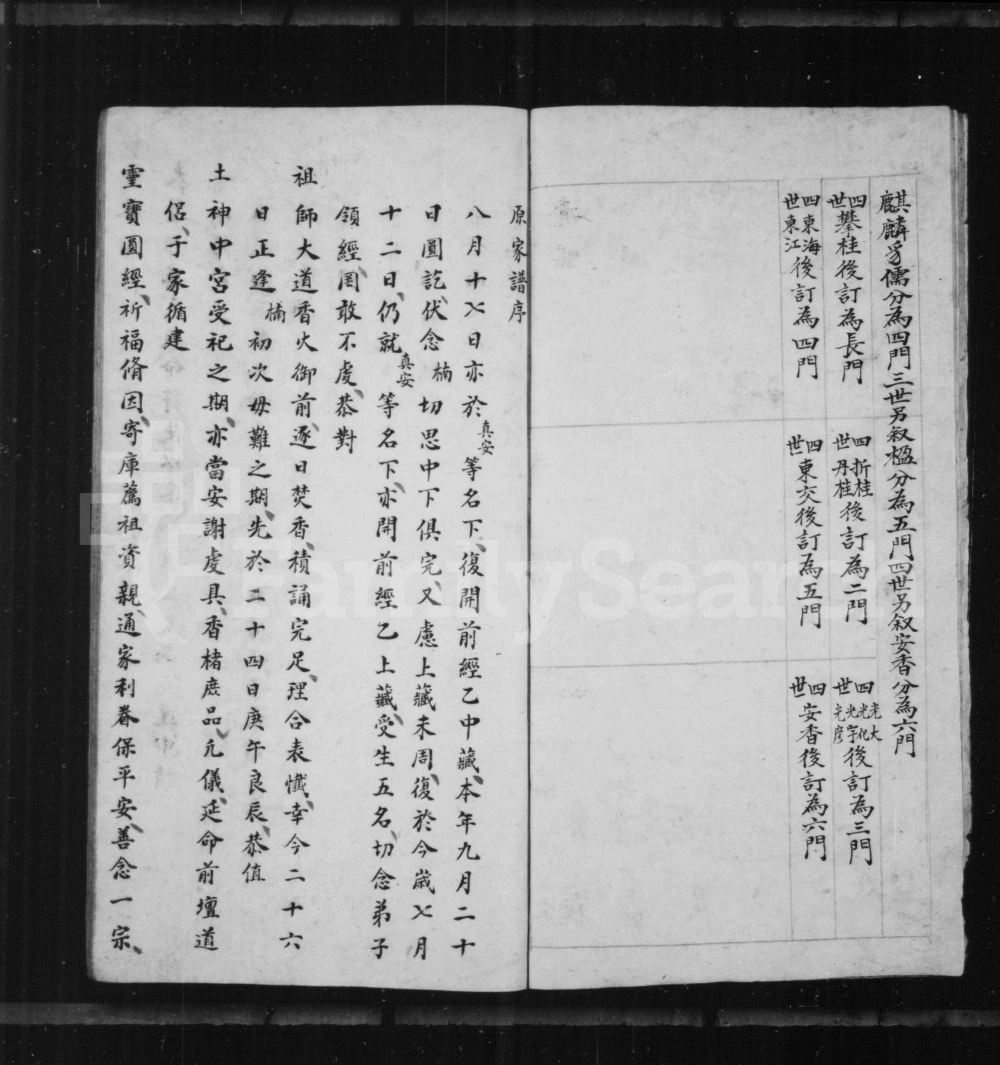 麒麟㝍儒分為四門三世另叙楹分為五門四世另叙安香分為六門
四世攀桂後訂為長門
四世折桂丹桂後訂為二門
四世光大光化光宇光彦後訂為三門
四世東海東江後訂為四門
四世東交後訂為五門
四世安香後訂為六門
原家譜序
八月十七日亦於真安等名下、復開前經乙中藏、本年九月二十
日圓訖、伏念楠切思中下俱完、又慮上藏未周、復於今歲七月
十二日、仍就真安等名下、亦開前經乙上藏、受生五名、切念弟子
領經、罔敢不虔、恭對
祖師大道香火御前、逐日焚香、積誦完足、理合表懺、幸今二十六
日正逢楠初次毋難之期、先於二十四日庚午良辰、恭值
土神中宮受祀之期、亦當安謝虔具、香楮庶品、凢儀、延命前壇道
侣、于家循建
霊寶圓經、祈福脩因、寄庫薦祖資親、通家利眷保平安、善念一宗、
FamilySearch